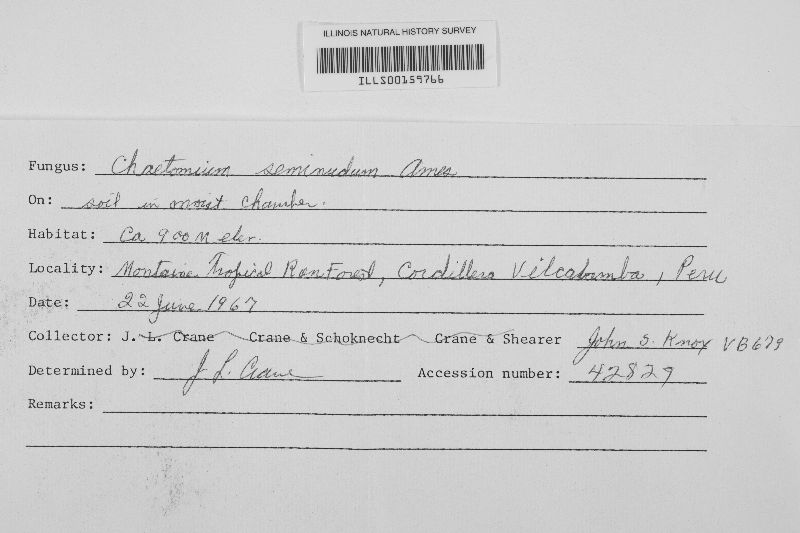 ILLINOIS NATURAL HISTORY SURVEY
ILLS00159766
Fungus: Chaetomium seminudum Ames
On: soil in moist chamber.
Habitat: Ca 900 M elev.
Locality: Montaine Tropical Ran Forest, Cordillera Vilcabamba, Peru
Date: 22 June 1967
Collector: J. L. Crane Crane & Schoknecht Crane & Shearer John S. Knox VB679
Determined by: J L. Crane Accession number: 42829
Remarks: